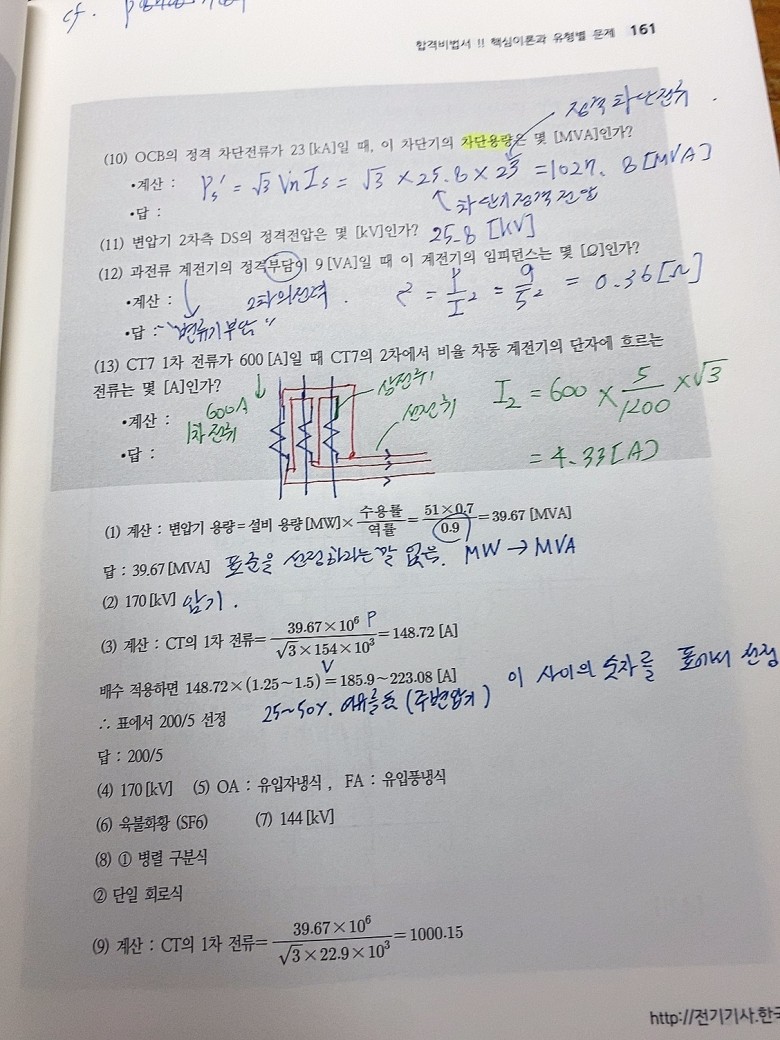 cf.
합격비법서 !! 핵심이론과 유형별 문제 161
정격 차단전류
(10) OCB의 정격 차단전류가 23[kA]일 때, 이 차단기의 차단용량은 몇 [MVA]인가?
•계산 : Ps' = √3 Vn Is = √3 × 25.8 × 23 = 1027.8[MVA]
•답 : 차단기정격전압
(11) 변압기 2차측 DS의 정격전압은 몇 [kV]인가? 25.8 [kV]
(12) 과전류 계전기의 정격부담이 9[VA]일 때 이 계전기의 임피던스는 몇 [Ω]인가?
•계산 : 2차의전력. = P/I² = 9/5² = 0.36[Ω]
•답 : "변류기부담"
(13) CT7 1차 전류가 600[A]일 때 CT7의 2차에서 비율 차동 계전기의 단자에 흐르는
전류는 몇 [A]인가? 상전류 I₂ = 600 × 5/1200 × √3
•계산 : 600A 선전류
1차전류
•답 : = 4.33[A]
(1) 계산 : 변압기 용량 = 설비 용량[MW] × 수용률/역률 = 51×0.7/0.9 = 39.67 [MVA]
답 : 39.67[MVA] 표준을 선정하라는 말 없음. MW → MVA
(2) 170[kV] 암기.
(3) 계산 : CT의 1차 전류 = 39.67×10⁶/√3×154×10³ = 148.72 [A] P
V
배수 적용하면 148.72×(1.25~1.5) = 185.9~223.08 [A] 이 사이의 숫자를 표에서 선정
∴ 표에서 200/5 선정 25~50%. 여유를 둠 (주변압기)
답 : 200/5
(4) 170[kV] (5) OA : 유입자냉식 , FA : 유입풍냉식
(6) 육불화황 (SF6) (7) 144[kV]
(8) ① 병렬 구분식
② 단일 회로식
(9) 계산 : CT의 1차 전류 = 39.67×10⁶/√3×22.9×10³ = 1000.15
http://전기기사.한국